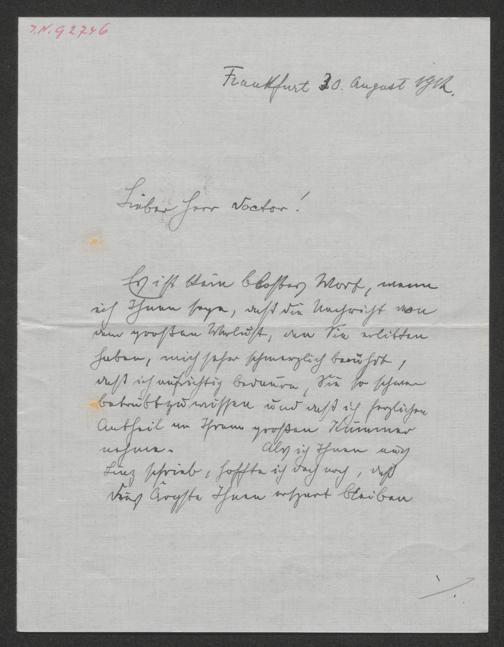 J.N. 92746
Frankfurt 30. August 1912.
Lieber Herr Doctor!
Es ist kein blosses Wort, wenn
ich Ihnen sage, daß die Nachricht von
dem großen Verlust, den Sie erlitten
haben, mich sehr schmerzlich berührt,
daß ich aufrichtig bedaure, Sie so schwer
betrübt zu wissen und daß ich herzlichen
Antheil an Ihrem großen Kummer
nehme. Als ich Ihnen aus
Linz schrieb, hoffte ich doch noch, daß
dies Ärgste Ihnen erspart bleiben